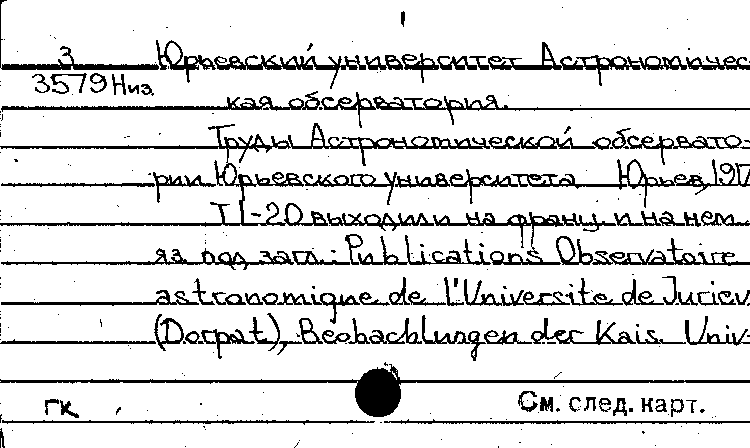 3 Юрьевский университет Астрономичес
3579 Низ
кая обсерватория.
Труды Астрономической обсервато-
рии Юрьевского университета Юрьев, 
Т 1-20 выходили на франц. и на нем
яз. под загл.: Publications Observatoire
astronomique de l'Universite de Juriev
(Dorpat), Beobachlungen der Kais. Univ-
ГК См. след. карт.